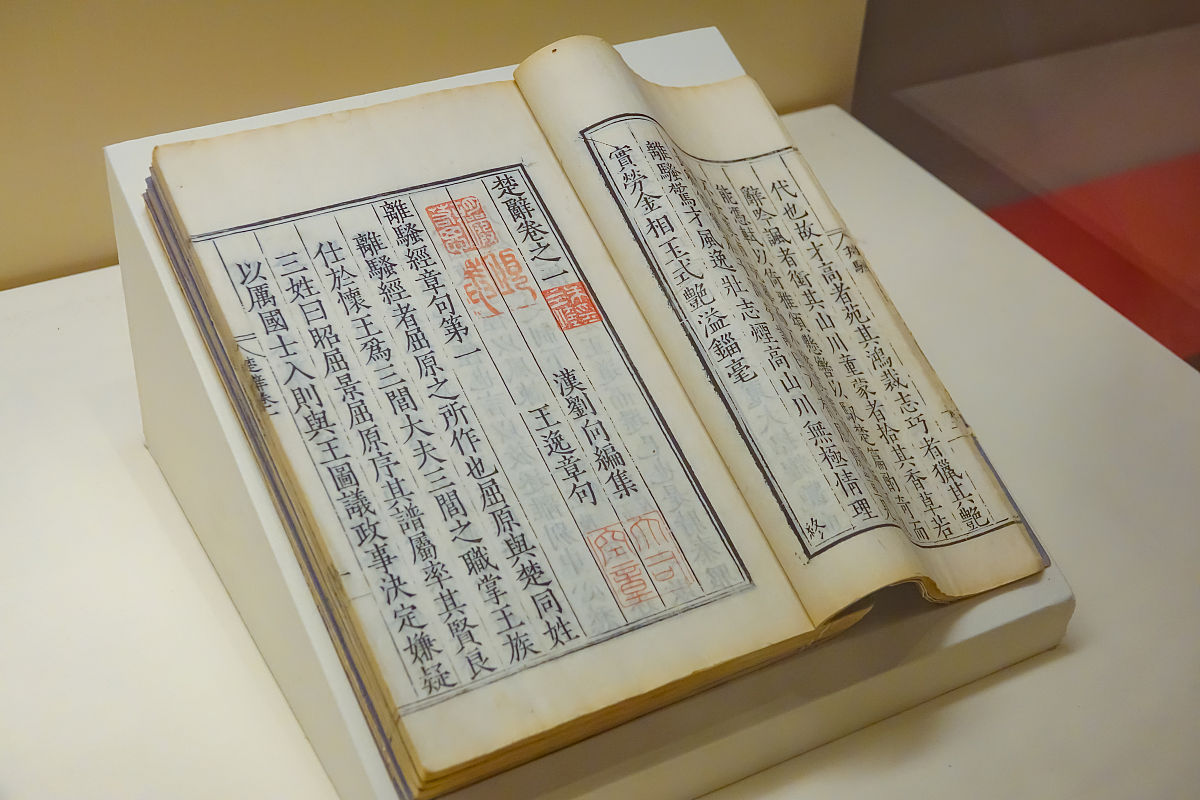 代也故才高者苑其鴻裁志巧者獵其艷
辭吟諷者銜其山川童蒙者拾其香草若
能憑軾以倚雅頌懸轡以馭楚篇酌奇而
離騷驚才風逸壯志煙高山川無極情理
實勞金相玉式艷溢錙毫
終
楚辭卷之一
漢劉向編集
王逸章句
離騷經章句第一
離騷經者屈原之所作也屈原與楚同姓
仕於懷王爲三閭大夫三閭之職掌王族
三姓曰昭屈景屈原序其譜屬率其賢良
以厲國士入則與王圖議政事決定嫌疑
楚辭卷一